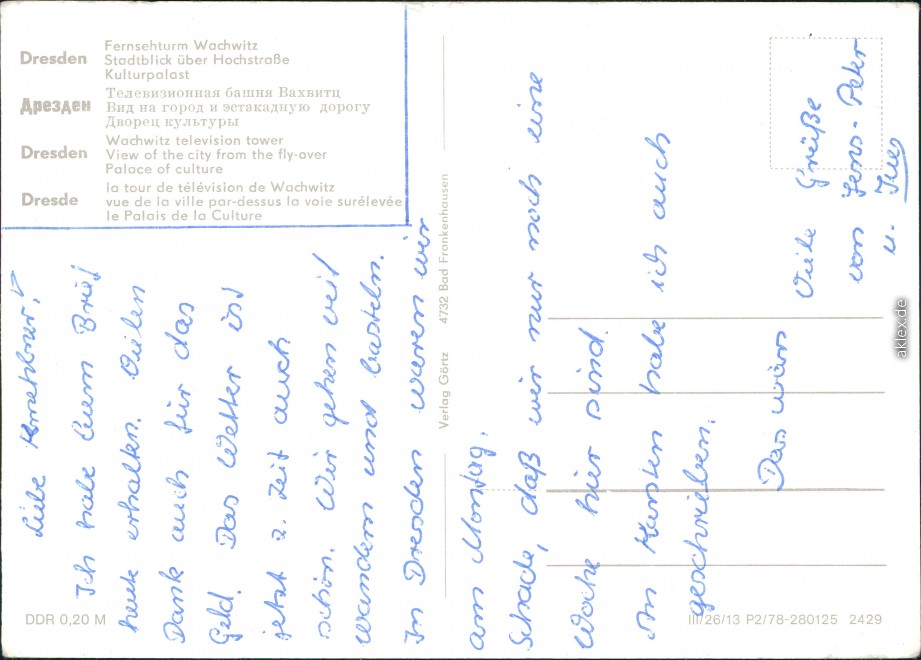 Dresden
Fernsehturm Wachwitz
Stadtblick über Hochstraße
Kulturpalast
Дрезден
Телевизионная башня Вахвитц
Вид на город и эстакадную дорогу
Дворец культуры
Dresden
Wachwitz television tower
View of the city from the fly-over
Palace of culture
Dresde
la tour de télévision de Wachwitz
vue de la ville par-dessus la voie surélevée
le Palais de la Culture
Liebe
Ich habe Euern Brief
heute erhalten. Vielen
Dank auch für das
Geld. Das Wetter ist
jetzt z. Zeit auch
schön. Wir gehen viel
wandern und basteln.
In Dresden waren wir
am Montag.
Schade, daß wir nur noch eine
Woche hier sind.
An Karsten habe ich auch
geschrieben.
Das wärs
Viele Grüße
von Jens-Peter
u. Ines
Verlag Görtz 4732 Bad Frankenhausen
DDR 0,20 M
III/26/13 P2/78-280125 2429
aklex.de